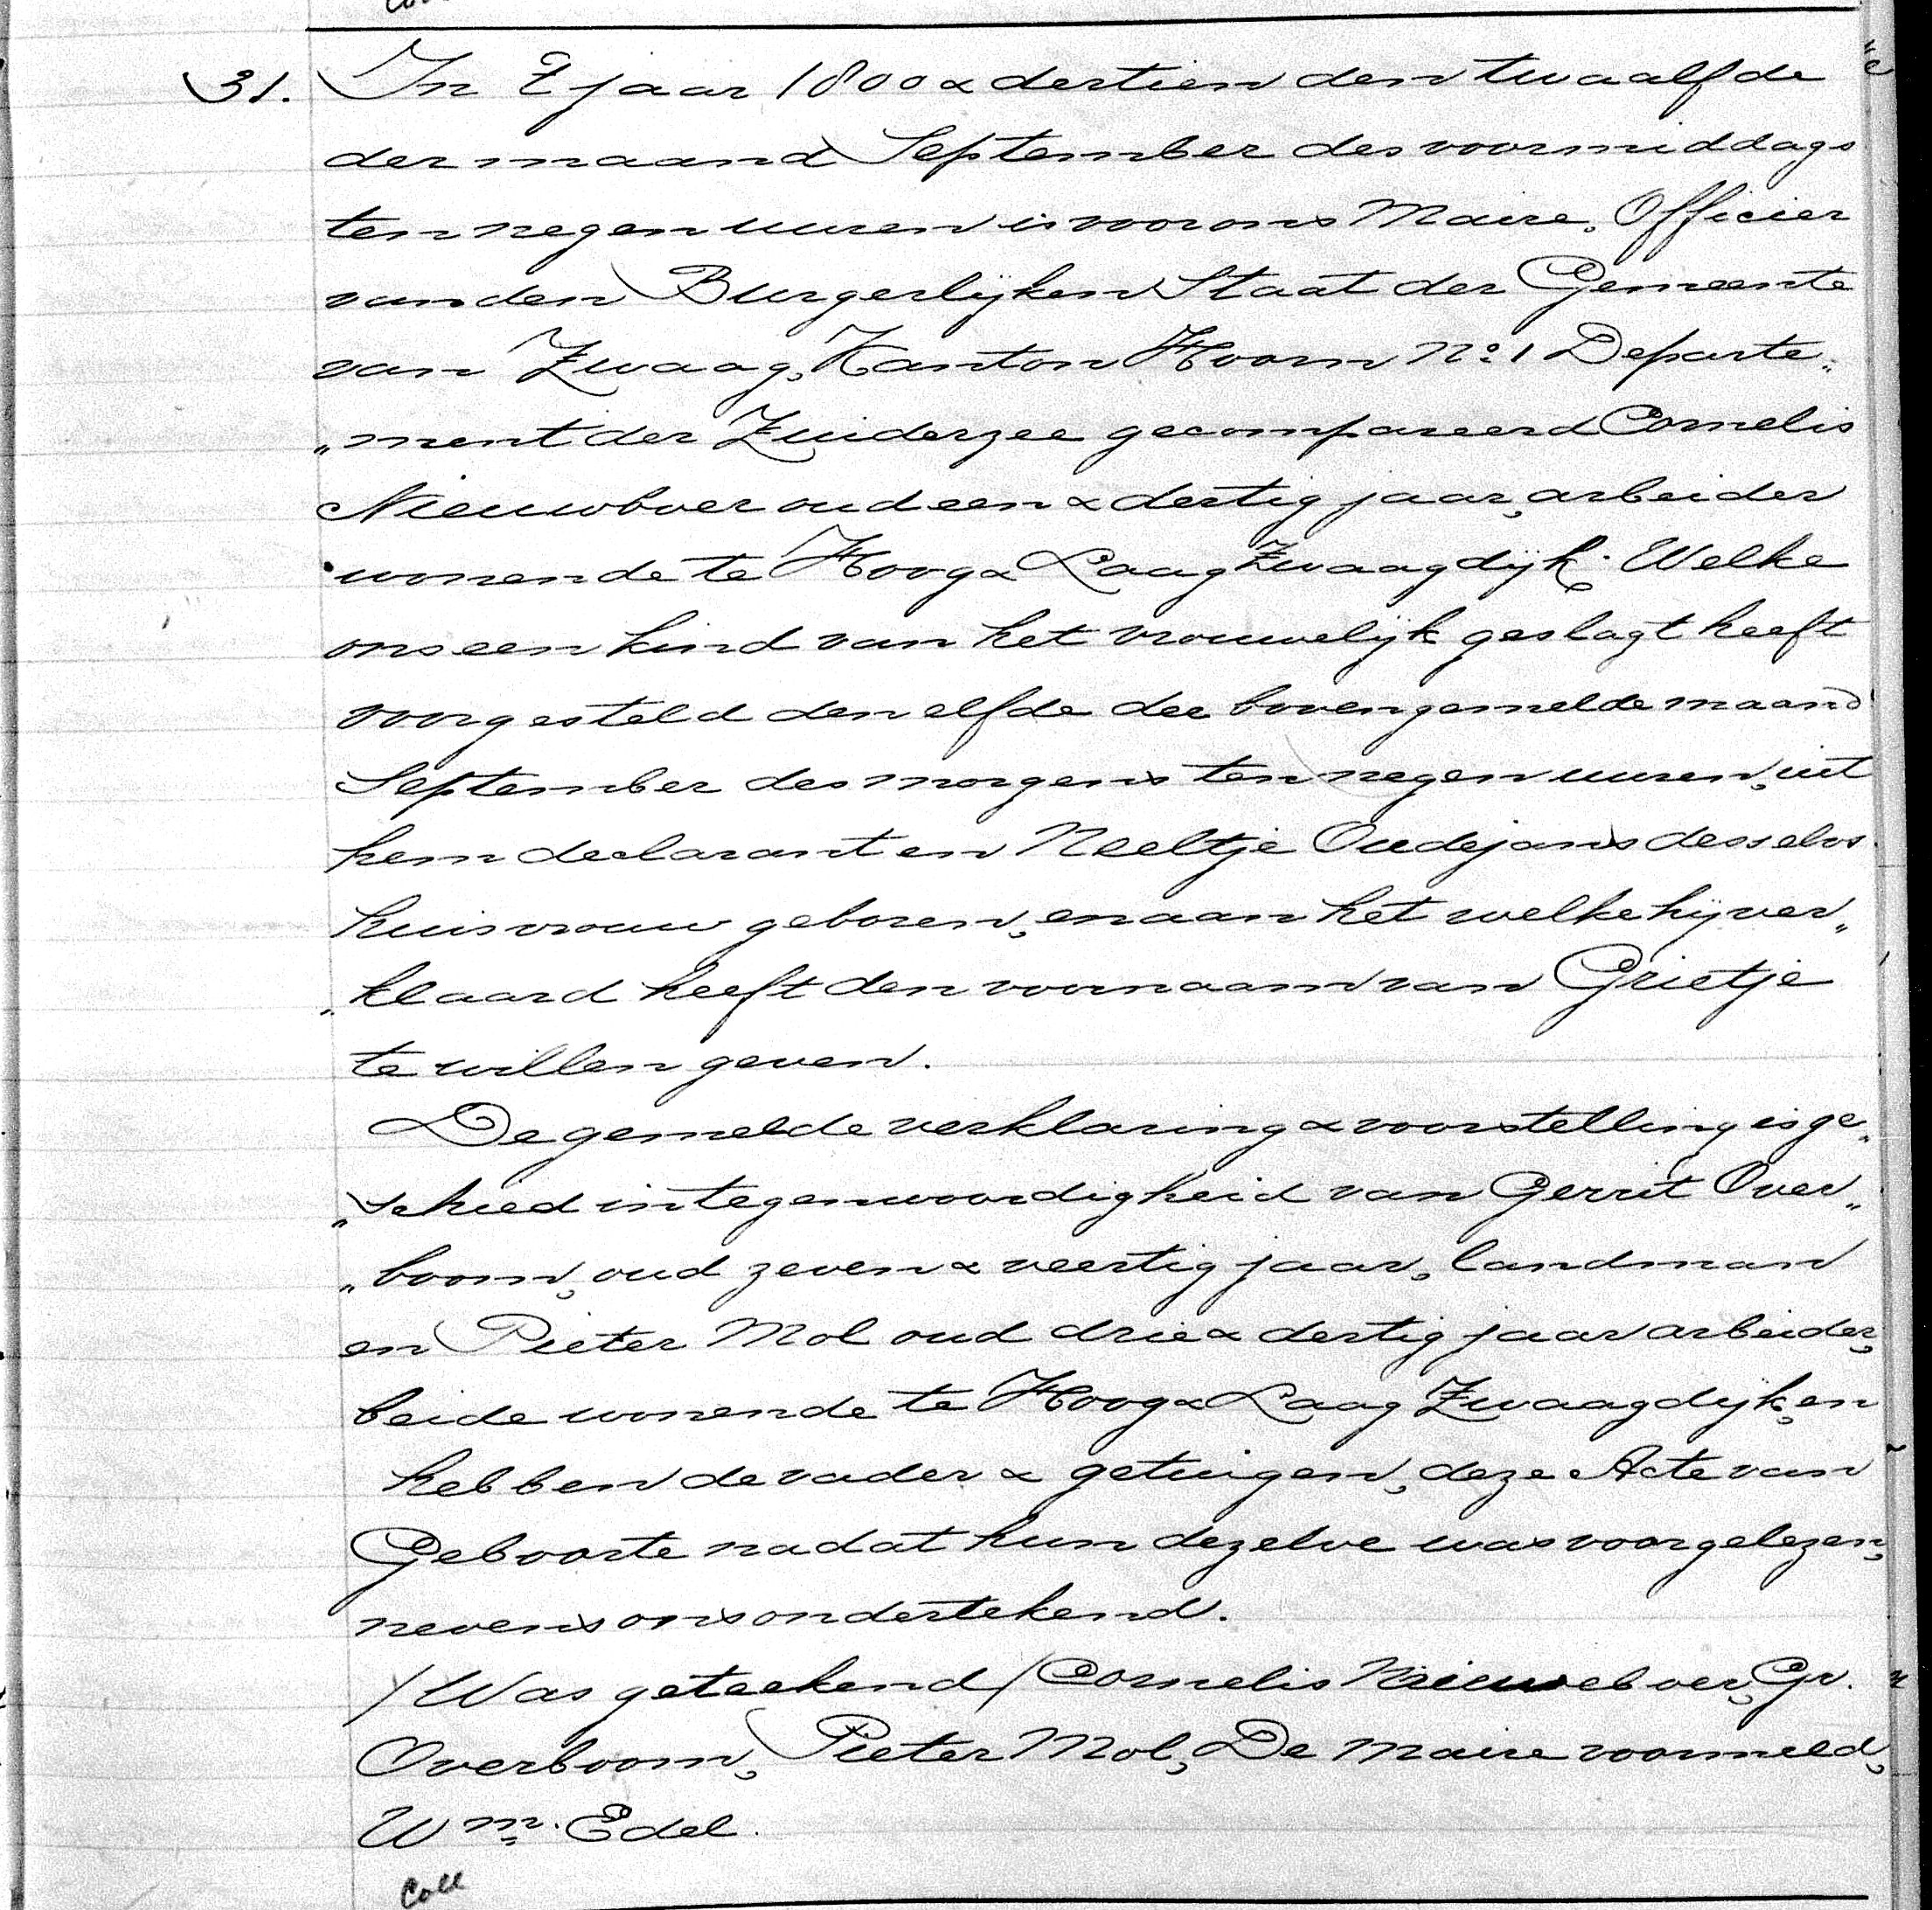 31. In 't jaar 1800 & dertien den twaalfde
der maand September des voormiddags
ten negen uuren is voor ons Maire, Officier
van den Burgerlijken Staat der Gemeente
van Zwaag, Kanton Hoorn No. 1 Departe„
„ment der Zuiderzee gecompareerd Cornelis
Nieuwboer oud een & dertig jaar, arbeider
wonende te Hoog & Laag Zwaagdijk. Welke
ons een kind van het vrouwelijk geslagt heeft
voorgesteld den elfde der bovengemelde maand
September des morgens ten negen uuren, uit
hem declarant en Neeltje Oudejans desselvs
huisvrouw geboren, en aan het welke hij ver„
„klaard heeft den voornaam van Grietje
te willen geven.
De gemelde verklaring & voorstelling is ge„
„schied in tegenwoordigheid van Gerrit Over„
„boom, oud zeven & veertig jaar, landman
en Pieter Mol oud drie & dertig jaar arbeider,
beide wonende te Hoog & Laag Zwaagdijk, en
hebben de vader & getuigen, deze Acte van
Geboorte nadat hun dezelve was voorgelezen,
nevens ons ondertekend.
/Was geteekend/ Cornelis Nieuweboer, Gr.
Overboom, Pieter Mol, De maire voormeld,
Wm. Edel.
Coll